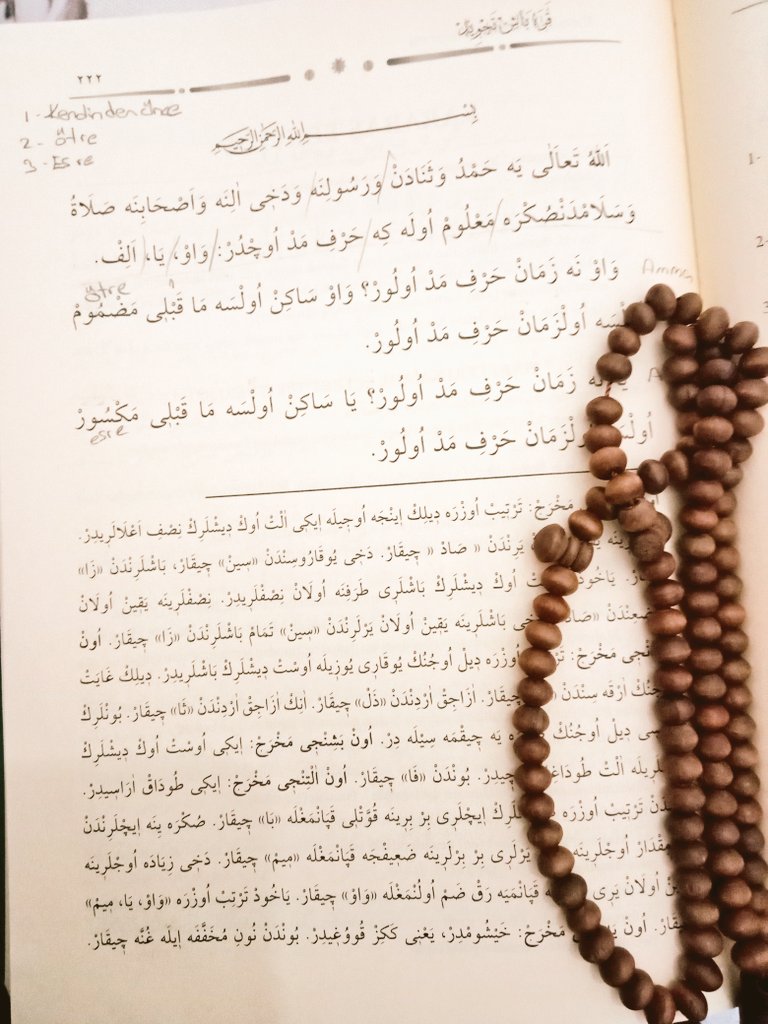 قَرَه بَاشْ تَجْوِيدِي
٢٢٢
1 - Kendinden önce
2 - ötre
3 - Esre
بِسْمِ اللهِ الرَّحْمٰنِ الرَّحِيمِ
اَللّٰهُ تَعَالٰى يَه حَمْدُ وَثَنَادَنْ وَرَسُولِنَه وَدَخِى اٰلِنَه وَاَصْحَابِنَه صَلَاةُ
وَسَلَامْدَنْصُكْرَه مَعْلُومْ اُولَه كِه حَرْفِ مَدْ اُوچْدُرْ: وَاوْ، يَا، اَلِفْ.
وَاوْ نَه زَمَانْ حَرْفِ مَدْ اُولُورْ؟ وَاوْ سَاكِنْ اُولْسَه مَا قَبْلِى مَضْمُومْ
ötre
اُولْزَمَانْ حَرْفِ مَدْ اُولُورْ.
زَمَانْ حَرْفِ مَدْ اُولُورْ؟ يَا سَاكِنْ اُولْسَه مَا قَبْلِى مَكْسُورْ
esre
حَرْفِ مَدْ اُولُورْ.
مَخْرَجْ: تَرْتِيبْ اُوزْرَه دِيلِكْ اِينْجَه اُوجِيلَه اِيكِى اَلْتْ اُوكْ دِيشْلَرِكْ نِصْفِ اَعْلَالَرِيدِرْ.
يَرِنْدَنْ « صَادْ » چِيقَارْ. دَخِى يُوقَارُوسِنْدَنْ «سِينْ» چِيقَارْ، بَاشْلَرِنْدَنْ «زَا»
يَاخُودْ اُوكْ دِيشْلَرِكْ بَاشْلَرِى طَرَفِنَه اُولَانْ نِصْفْلَرِيدِرْ. نِصْفْلَرِينَه يَقِينْ اُولَانْ
بَاشْلَرِينَه يَقِينْ اُولَانْ يَرْلَرِنْدَنْ «سِينْ» تَمَامْ بَاشْلَرِنْدَنْ «زَا» چِيقَارْ. اُونْ
مَخْرَجْ: اُوزْرَه دِيلْ اُوجُنُكْ يُوقَارِى يُوزِيلَه اُوسْتْ دِيشْلَرِكْ بَاشْلَرِيدِرْ. دِيلِكْ غَايَتْ
اَرْقَه سِنْدَنْ چِيقَارْ. اَزَاجِقْ اَرْدِنْدَنْ «ذَلْ» چِيقَارْ. اَنِكْ اَزَاجِقْ اَرْدِنْدَنْ «ثَا» چِيقَارْ. بُونْلَرِكْ
دِيلْ اُوجُنُكْ يَه چِيقْمَه سِيلَه دِرْ. اُونْ بَشِنْجِى مَخْرَجْ: اِيكِى اُوسْتْ اُوكْ دِيشْلَرِكْ
اَلْتْ بُونْدَنْ «فَا» چِيقَارْ. اُونْ اَلْتِنْجِى مَخْرَجْ: اِيكِى طُودَاقْ اٰرَاسِيدِرْ.
تَرْتِيبْ اُوزْرَه اِيچْلَرِى بِرْ بِرِينَه قُوَّتْلِى قَپَانْمَغْلَه «بَا» چِيقَارْ. صُكْرَه يِنَه اِيچْلَرِنْدَنْ
مِقْدَارْ اُوجْلَرِينَه يَرْلَرِى بِرْ بِرْلَرِينَه ضَعِيفْجَه قَپَانْمَغْلَه «مِيمْ» چِيقَارْ. دَخِى زِيَادَه اُوجْلَرِينَه
اُولَانْ يَرِى قَپَانْمَيَه رَقْ ضَمْ اُولُنْمَغْلَه «وَاوْ» چِيقَارْ. يَاخُودْ تَرْتِبْ اُوزْرَه «وَاوْ، بَا، مِيمْ»
اُونْ مَخْرَجْ: خَيْشُومْدِرْ، يَعْنِى كَكِزْ قُووُغِيدِرْ. بُونْدَنْ نُونِ مُخَفَّفَه اِيلَه غُنَّه چِيقَارْ.